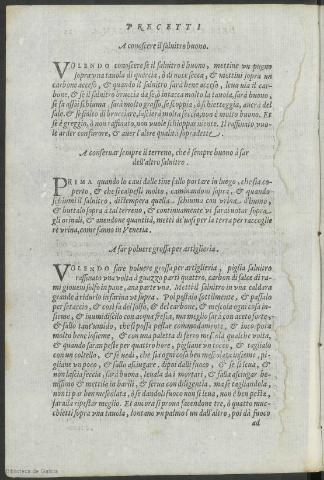 PRECETTI
A conoscere il salnitro buono.
VOLENDO conoscere se il salnitro è buono, mettine un pugno
sopra vna tauola di quercia, ò di noce secca, & mettiui sopra vn
carbone acceso, & quando il salnitro sarà bene acceso, leua uia il car-
bone, & se il salnitro bruccia da se, ò intacca molto la tauola, sarà buono,
se fa assai schiuma, sarà molto grasso, se scoppia, ò si bietteggia, auerà del
sale, & se finito di brucciare, lascierà molta feccia, non è molto buono. Et
se è greggio, ò non raffinato, non vuole schioppar niente. Il raffinato vuo-
le arder
A conseruar sempre il terreno, che è sempre buono à far
dell'altro salnitro.
PRIMA quando lo caui dalle tine fallo portare in luogo, che sia co-
perto, & che si calpesti molto, caminandoui sopra, & quando
schiumi il salnitro, distempera quella schiuma con vrina d'huomo,
& buttala sopra à tal terreno, & continuamente vi farai uotar sopra
gli orinali, & auendone quantità, metti de' uasi per la terra per raccoglie
re vrina, come fanno in Venetia.
A far poluere grossa per artiglieria.
VOLENDO fare poluere grossa per artiglieria, piglia salnitro
raffinato vna volta
gioueni solfo in pane, ana parte vna. Metti il salnitro in vna caldara
grande à ridurlo in farina vt supra. Poi pestalo sottilmente, & passalo
per setaccio, & così fa del solfo, & del carbone, & mescola ogni cosa in-
sieme, & inumidiscilo con acqua fresca, ma meglio sarà con aceto forte,
& fallo tant'umido, che si possa pestar commodamente, & incorpora
molto bene insieme, & con una paletta di ferro mescola qualche volta,
& quando sarà pesto per quattro hore, pigliane vn poco, & taglialo
con un coltello, & se uedi, che sia ogni cosa ben mescolata insieme, pi-
gliane vn poco, & fallo asciugare, dipoi dalli fuoco, & se si leua, &
non lascia feccia, sarà buona, leuala da i mortari, & falla asciugar be-
nissimo & mettila in barili, & serua con diligentia, ma se tagliandola,
non ti par ben mescolata, ò se dandoli fuoco non si leua, non è ben pesta,
farala ripestar meglio. Et ancora si prona facendone tre, ò quatro muc-
chietti sopra vna tauola, lontano vn palmo l'un dall'altro, poi dà fuoco
ad
Biblioteca de Galicia